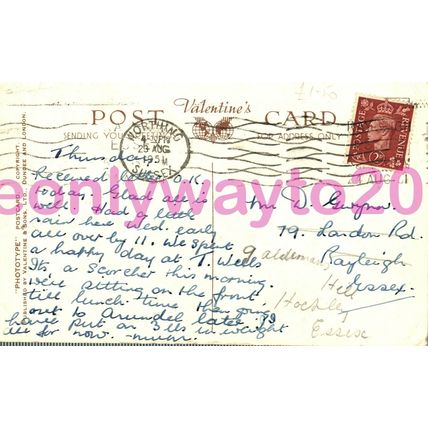 £1-50
Valentine's
POST CARD
SENDING YOU
FOR ADDRESS ONLY
WORTHING
SUSSEX
4- PM
23 AUG
1951
POSTAGE REVENUE
Thursday
Received letter O.K.
today. Glad all is
well. Had a little
rain here Wed. early
all over by 11. We spent
a happy day at T. Wells
Its a scorcher this morning.
We're sitting on the front
till lunch time then going
out to Arundel later. I'd
have put on 3lbs in weight
all for now. - mum.
Mr D.
79. London Rd.
Rayleigh
Essex.
Hill
Hockley
Essex
"PHOTOTYPE" POSTCARD COPYRIGHT.
PUBLISHED BY VALENTINE & SONS, LTD. DUNDEE AND LONDON.
eonlywayto20